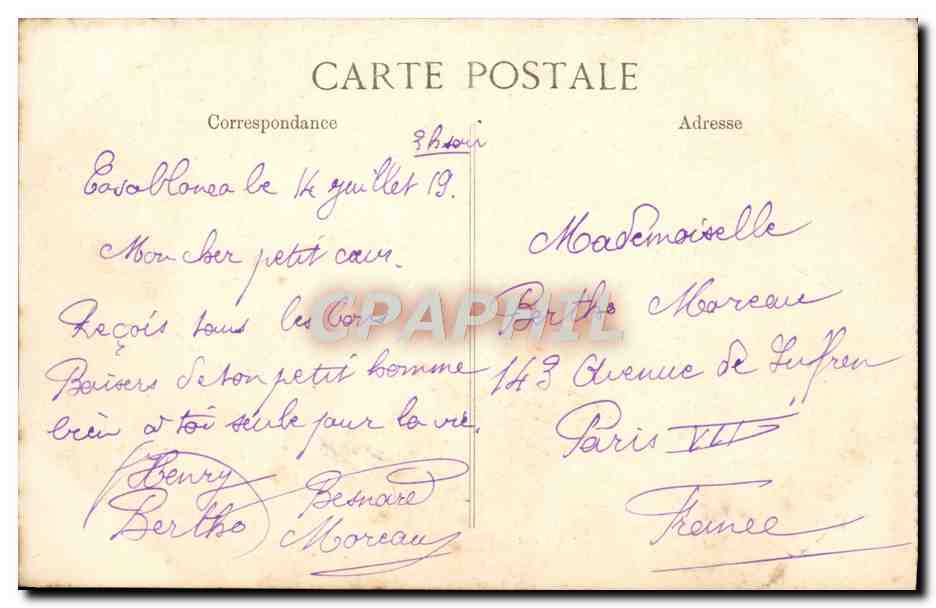 CARTE POSTALE
Correspondance
Adresse
3h soir
Casablanca le 14 juillet 19.
Mon cher petit cœur.
Reçois tous les bons
Baisers de ton petit homme
bien à toi seule pour la vie.
Henry Besnard
Berthe Moreau
Mademoiselle
Berthe Moreau
143 Avenue de Suffren
Paris VII
France
CPAPHIL